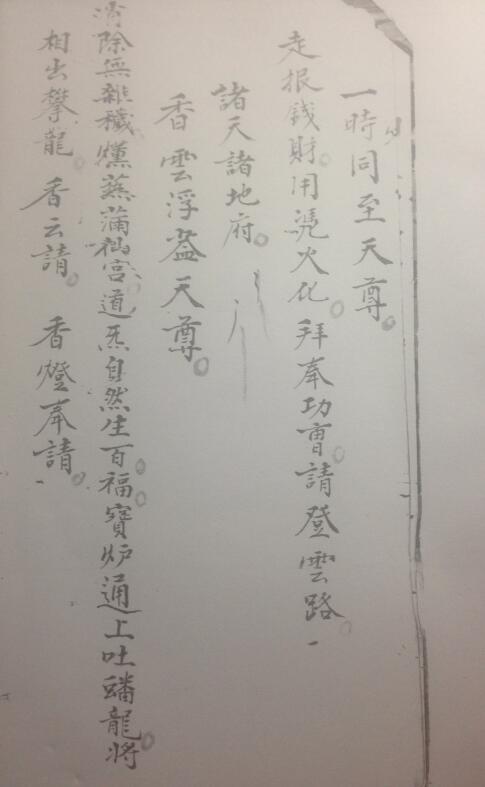 一時同至天尊。
走報錢財用憑火化。拜奉功曹。請登雲路。
諸天諸地府。
香雲浮盖天尊。
消除無雜穢。燻蒸蒲仙宮。道炁自然生百福。寳炉通上吐蟠龍。將
相出攀龍。香云請。香燈奉請。